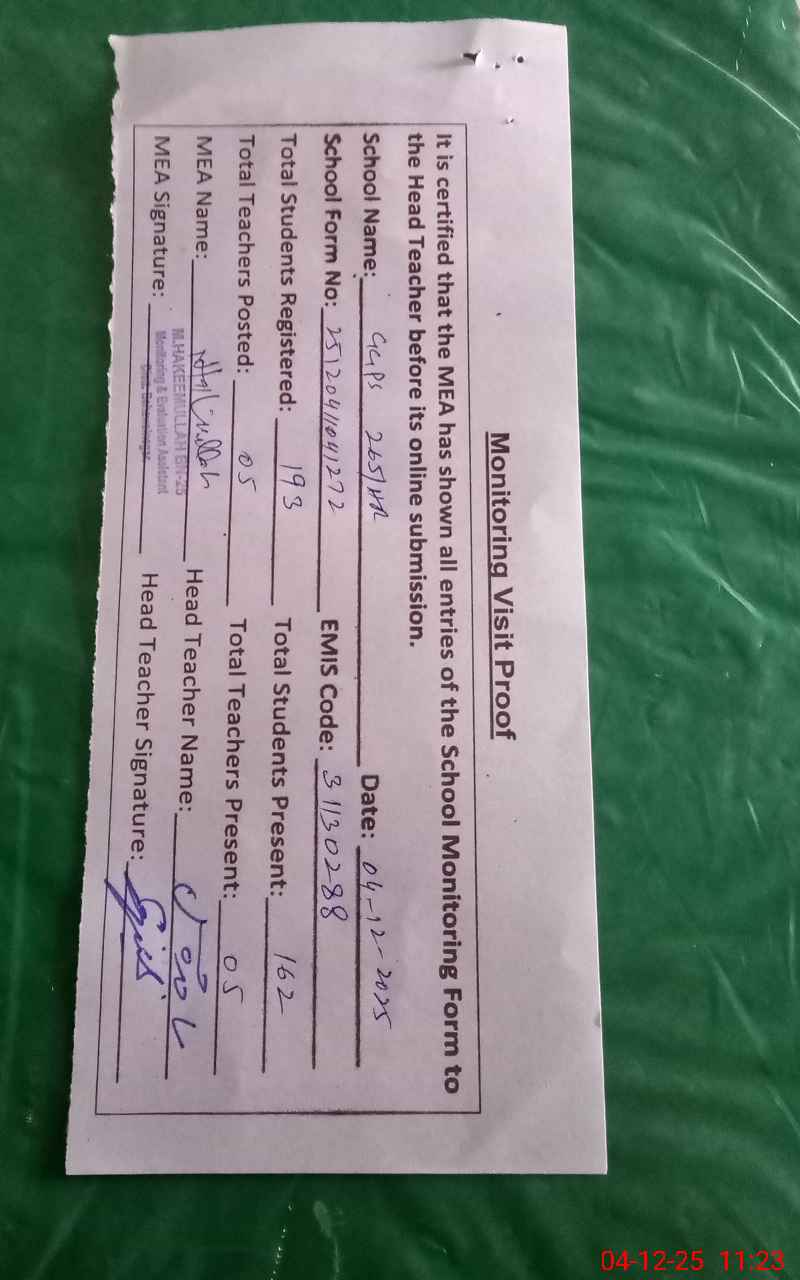 Monitoring Visit Proof
It is certified that the MEA has shown all entries of the School Monitoring Form to
the Head Teacher before its online submission.
School Name: GGPS 265/HR Date: 04-12-2025
School Form No: 25120411041272 EMIS Code: 31130288
Total Students Registered: 193 Total Students Present: 162
Total Teachers Posted: 05 Total Teachers Present: 05
MEA Name: Head Teacher Name:
M.HAKEEMULLAH BN-25
Monitoring & Evaluation Assistant
MEA Signature: Head Teacher Signature:
04-12-25 11:23